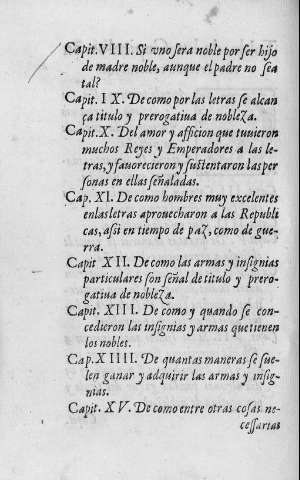 Capit. VIII. Si vno sera noble por ser hijo
de madre noble, aunque el padre no sea
tal?
Capit. IX. De como por las letras se alcan
ça titulo y prerogatiua de nobleza.
Capit. X. Del amor y afficion que tuuieron
muchos Reyes y Emperadores a las le-
tras, y fauorecieron y sustentaron las per
sonas en ellas señaladas.
Cap. XI. De como hombres muy excelentes
en las letras aprouecharon a las Republi
cas, assi en tiempo de paz, como de gue-
rra.
Capit XII. De como las armas y insignias
particulares son señal de titulo y prero-
gatiua de nobleza.
Capit. XIII. De como y quando se con-
cedieron las insignias y armas que tienen
los nobles.
Cap. XIIII. De quantas maneras se sue-
len ganar y adquirir las armas y insig-
nias.
Capit. XV. De como entre otras cosas ne-
cessarias